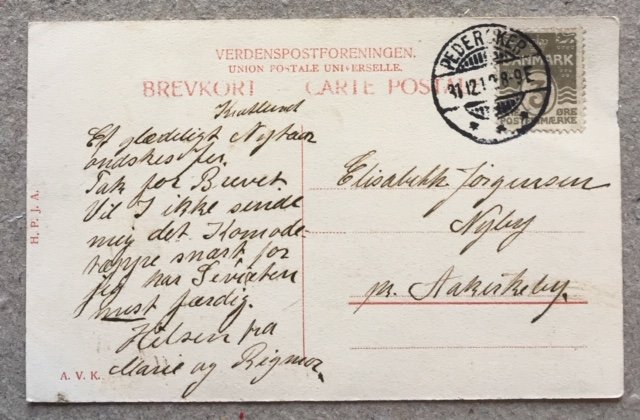 VERDENSPOSTFORENINGEN.
UNION POSTALE UNIVERSELLE.
BREVKORT – CARTE POSTALE
PEDERSKER
31.12.12. 8-9 E
DANMARK
3
ØRE
POSTFRIMÆRKE
Et glædeligt Nytaar
ønskes
Tak for Brevet
Vil I ikke sende
mig det Komode-
tæppe snart for
jeg har
næst færdig.
Hilsen fra
Marie og Rigmor
Elisabeth Jørgensen
Nyby
pr. Aakirkeby.
H. P. J. A.
A. V. K.